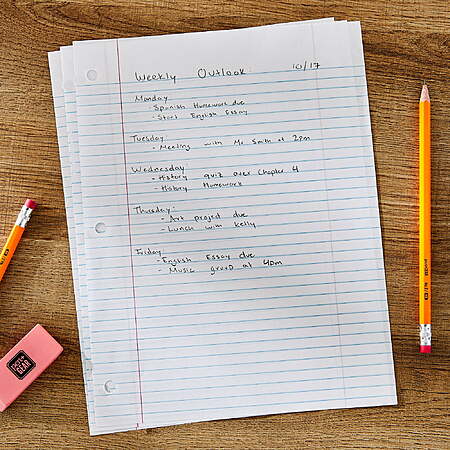 Weekly Outlook 10/17
Monday
- Spanish Homework due
- Start English Essay
Tuesday
- Meeting with Mr Smith at 2pm
Wednesday
- History quiz over Chapter 4
- History Homework
Thursday:
- Art project due
- Lunch with Kelly
Friday
- English Essay due
- Music group at 4pm
PEN+
GEAR